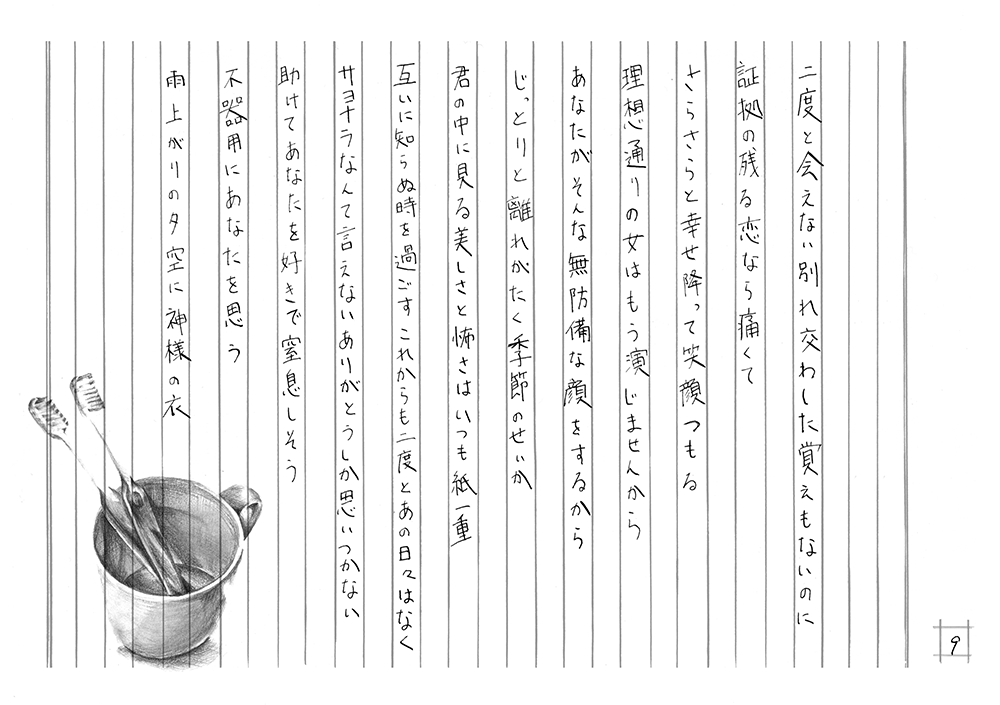 二度と会えない別れ交わした覚えもないのに
証拠の残る恋なら痛くて
さらさらと幸せ降って笑顔つもる
理想通りの女はもう演じませんから
あなたがそんな無防備な顔をするから
じっとりと離れがたく季節のせいか
君の中に見る美しさと怖さはいつも紙一重
互いに知らぬ時を過ごすこれからも二度とあの日々はなく
サヨナラなんて言えないありがとうしか思いつかない
助けてあなたを好きで窒息しそう
不器用にあなたを思う
雨上がりの夕空に神様の衣
9